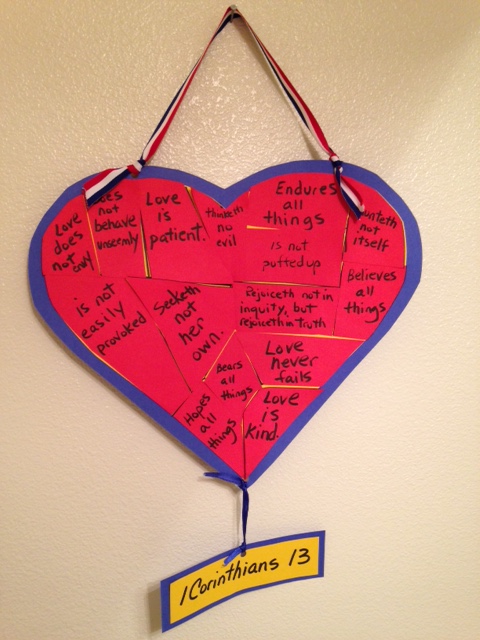 Love
does
not envy
does
not
behave
unseemly
Love
is
patient.
thinketh
no
evil
Endures
all
things
is not
puffed up
vaunteth
not
itself
Believes
all
things
is not
easily
provoked
Seeketh
not
her
own.
Rejoiceth not in
inquity, but
rejoiceth in truth
Love
never
fails
Bears
all
things
Hopes
all
things
Love
is
kind.
1 Corinthians 13